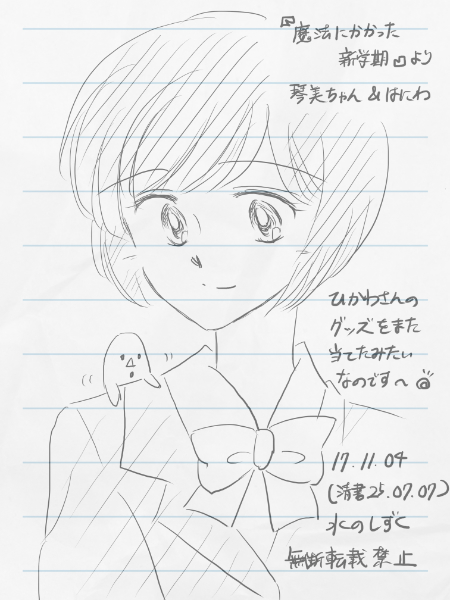 『魔法にかかった
新学期』より
琴美ちゃん&はにわ
ひかわさんの
グッズをまた
当てたみたい
なのです〜
17.11.04
(清書25.07.07)
水のしずく
無断転載禁止